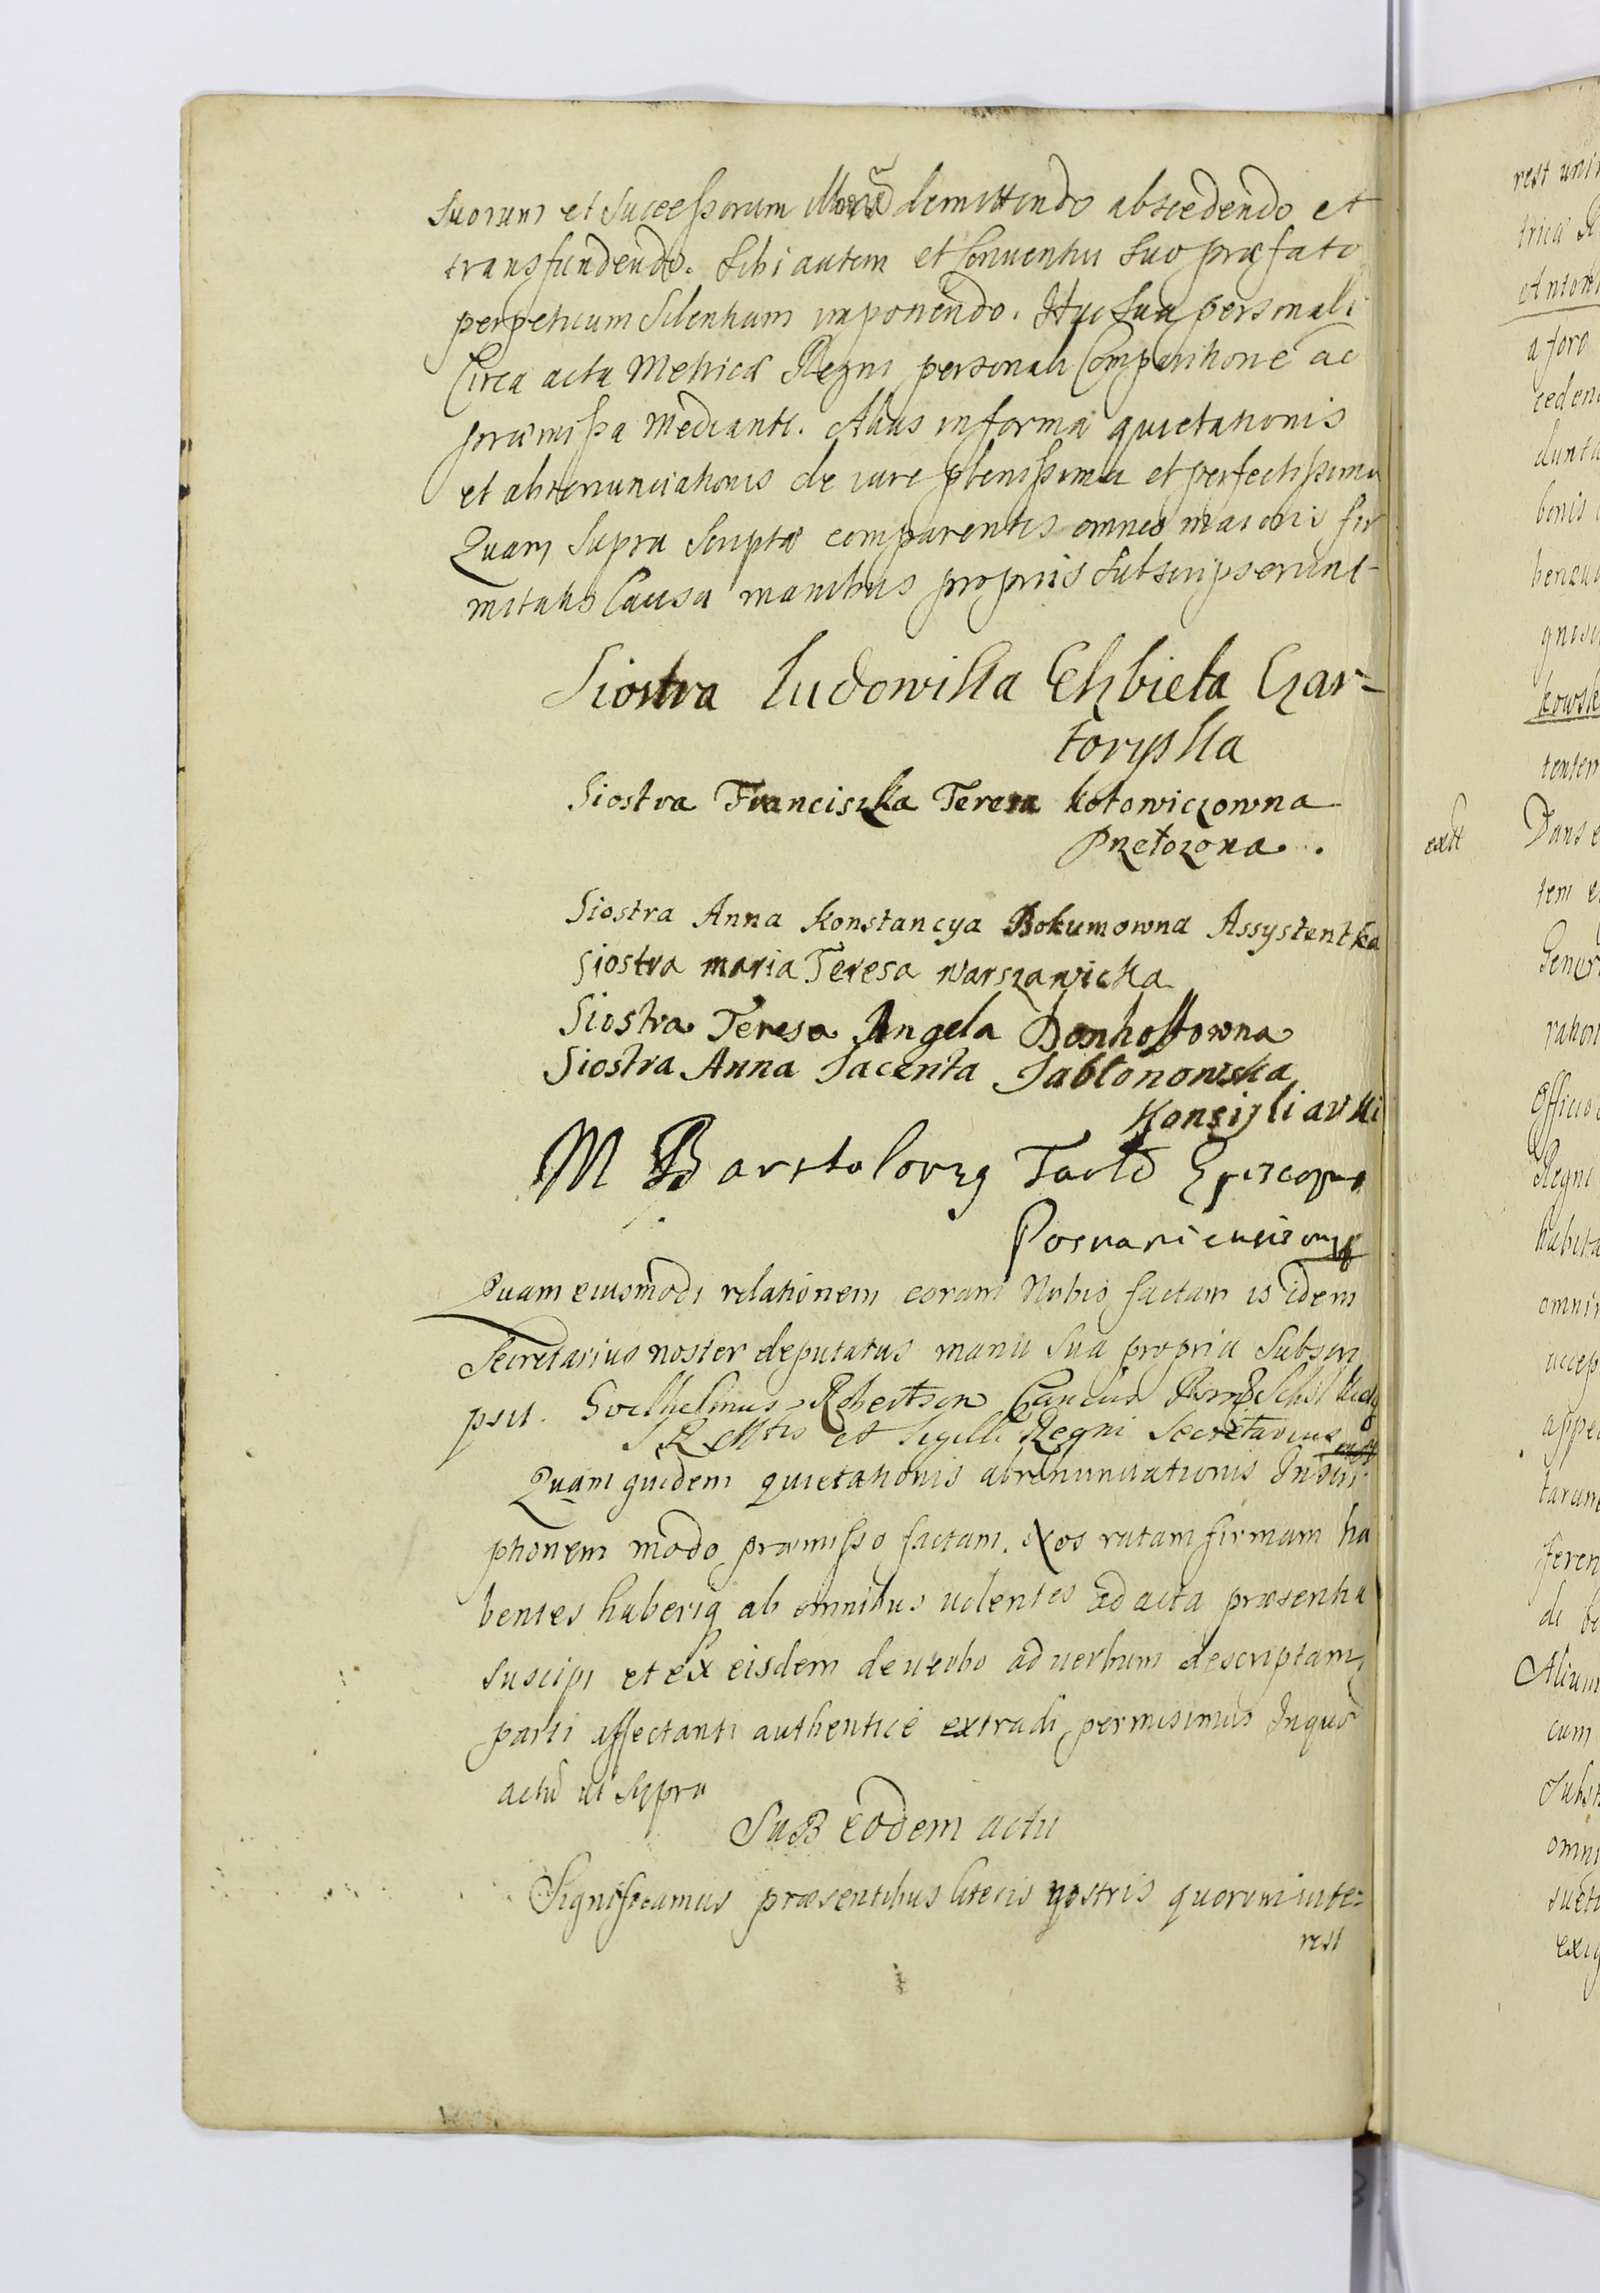 suorum et Successorum dimittendo abscedendo et
transfundendo. Sibi autem et Conventui suo præfato
perpetuum Silentium imponendo. Hac sua personali
Circa acta Metricæ Regni personali Comparitione ac
præmissa mediante. Alias in forma quietationis
et abrenunciationis de iure plenissima et perfectissima
Quam supra scriptæ comparentes omnes maioris fir
mitatis Causa manibus propriis subscripserunt
Siostra Ludowika Elzbieta Czar=
toryska
Siostra Franciszka Teresa Kotowiczowna
Przełozona.
Siostra Anna Konstancya Bokumowna Assystentka
Siostra maria Teresa warszawicka
Siostra Teresa Angela Donhoffowna
Siostra Anna Jacenta Jabłonowska
Konsyliarki
M Bartolomeg Tarło Episcopus
Posnaniensis mp
Quam eiusmodi relationem coram Nobis factam is idem
Secretarius noster deputatus manu sua propria Subscri
psit. Guilhelmus Robertson
S R Mtis et Sigilli Regni Secretarius
Quam quidem quietationis abrenunciationis Inscri
ptionem modo præmisso factam. Nos ratam firmam ha
bentes haberiq ab omnibus volentes ad acta præsentia
suscipi et ex eisdem de verbo ad verbum descriptam
parti affectanti authentice extradi permisimus In quor
actu ut supra
SuB eodem actu
Significamus præsentibus literis nostris quorum inte=
rest
extt